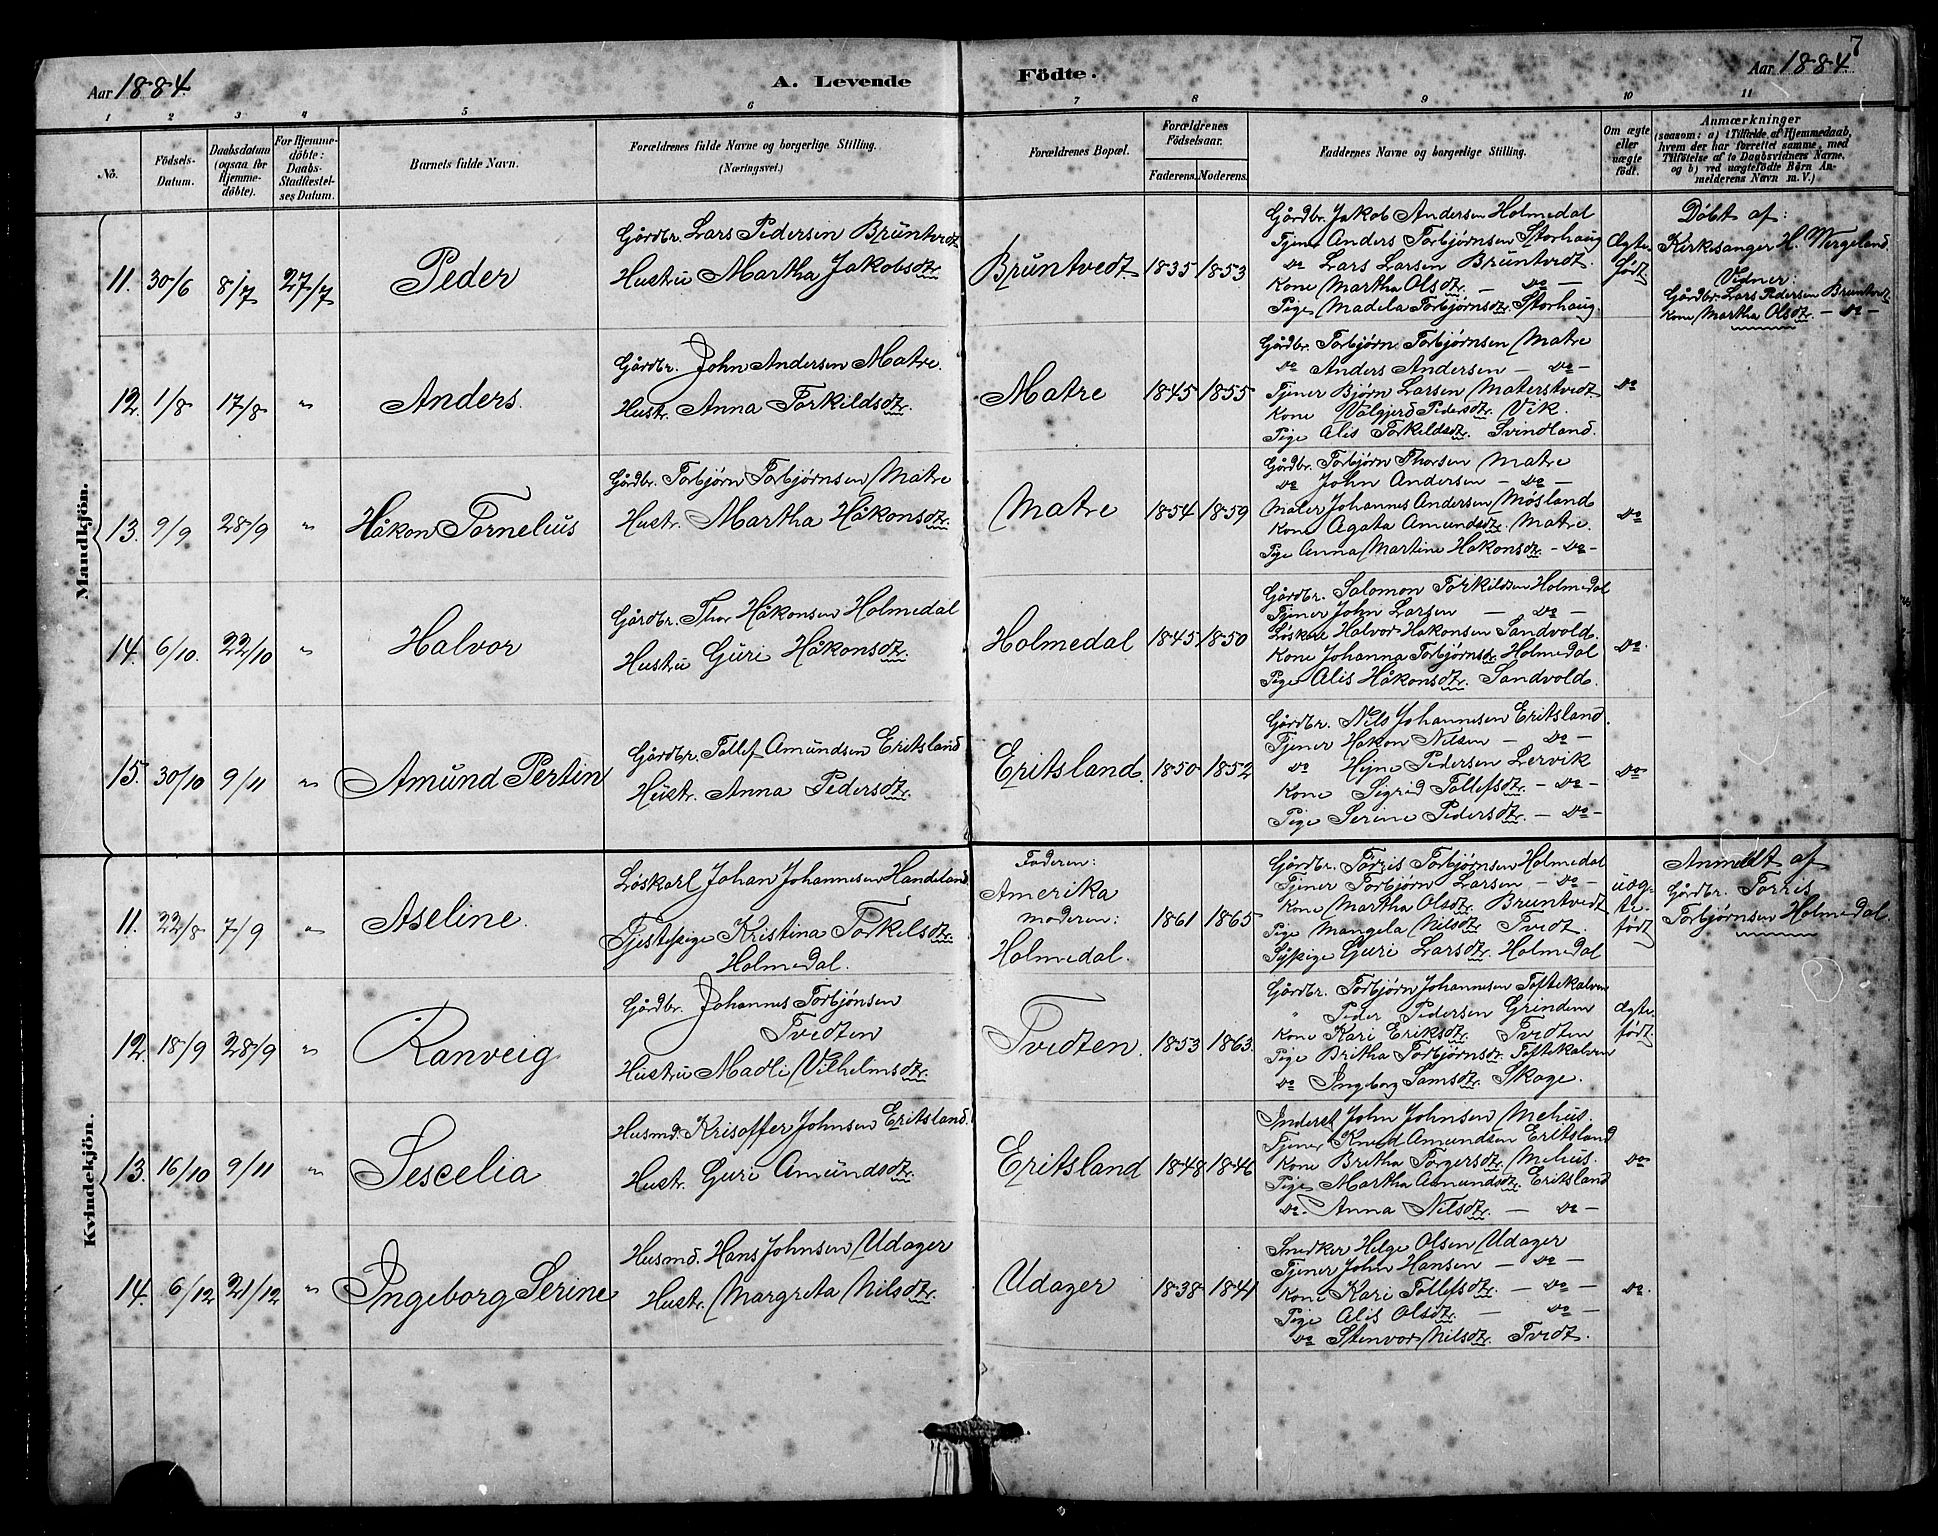 7
Aar 1884. A. Levende Födte. Aar 1884.
1 2 3 4 5 6 7 8 9 10 11
No.
Födsels-Datum.
Daabsdatum (ogsaa for Hjemmedöbte).
For Hjemmedöbte: Daabs-Stadfæstelses Datum.
Barnets fulde Navn.
Forældrenes fulde Navne og borgerlige Stilling.
(Næringsvei.)
Forældrenes Bopæl.
Forældrenes Födselsaar.
Faderens. Moderens.
Faddernes Navne og borgerlige Stilling.
Om ægte eller uægte födt.
Anmærkninger
(saasom: a) i Tilfælde af Hjemmedaab,
hvem der har forrettet samme, med
Tilföielse af to Daabsvidners Navne,
og b) ved uægtefödte Börn Anmelderens Navn m. V.)
Mandkjön.
11. 30/6 8/7 27/7 Peder
Gårdbr. Lars Pedersen Bruntvedt
Hustru Martha Jakobsdtr.
Bruntvedt 1835 1853
Gårdbr. Jakob Andersen Holmedal
Tjener Anders Torbjørnsen Storhaug
do Lars Larsen Bruntvedt.
Kone Martha Olsdtr. — do —
Pige Madela Torbjørnsdtr. Storhaug.
Ægte-
født
Døbt af:
Kirkesanger H. Vergeland.
Vidner:
Gårdbr. Lars Pedersen Bruntvedt
Kone Martha Olsdtr. — do —
12. 1/8 17/8 " Anders.
Gårdbr. John Andersen Matre.
Hustr. Anna Torkildsdtr.
Matre 1845 1855
Gårdbr. Torbjørn Torbjørnsen Matre
do Anders Andersen — do —
Tjener Bjørn Larsen Materstvedt
Kone Valgjerd Pedersdtr. Vik.
Pige Alis Torkildsdtr. Svindland.
do
13. 9/9 28/9 " Håkon Tornelius
Gårdbr. Torbjørn Torbjørnsen Matre
Hustr. Martha Håkonsdtr.
Matre 1854 1859
Gårdbr. Torbjørn Thorsen Matre
do John Andersen — do —
Maler Johannes Andersen Møsland
Kone Agata Amundsdtr. Matre.
Pige Anna Martine Hakonsdtr. — do —
do
14. 6/10. 22/10 " Halvor
Gårdbr. Thor Håkonsen Holmedal
Hustru Guri Håkonsdtr.
Holmedal 1845 1850
Gårdbr. Salomon Torkildsen Holmedal
Tjener John Larsen — do —
Halvor Hakonsen Sandvold.
Kone Johanna Torbjørnsdtr. Holmedal
Pige Alis Håkonsdtr. Sandvold.
do.
15. 30/10 9/11 " Amund Pertin
Gårdbr. Tollef Amundsen Eritsland
Hustr. Anna Pedersdtr.
Eritsland. 1850 1852
Gårdbr. Nils Johannesen Eritsland.
Tjener Hakon Nilsen — do —
do Hejne Pedersen Lervik
Kone Sigrid Tollefsdtr. — do —
Pige Serine Pedersdtr. — do —
do
Kvindekjön.
11. 22/8 7/9 " Aseline.
Løskarl Johan Johannesen Handeland
Tjestepige Kristina Torkelsdtr.
Holmedal.
Faderen:
Amerika
Moderen:
Holmedal.
1861 1865
Gårdbr. Torris Torbjørnsen Holmedal
Tjener Torbjørn Larsen — do —
Kone Martha Olsdtr. Bruntvedt
Pige Mangela Nilsdtr. Tvedt.
Sypige Guri Larsdtr. Holmedal
uæg-
te-
født
Anmeldt af
Gårdbr. Torris
Torbjørnsen Holmedal.
12. 18/9 28/9 " Ranveig
Gårdbr. Johannes Torbjønsen
Tvedten
Hustru Madli Vilhelmsdtr.
Tvedten. 1853 1863.
Gårdbr. Torbjørn Johannesen Toftekalven
" Peder Pedersen Grindem
Kone Kari Eriksdtr. Tvedten
Pige Britha Torbjørnsdtr. Toftekalven
do Ingeborg Samsdtr. Skage.
Ægte-
født
13. 16/10 9/11 " Sescelia
Husmd. Krisoffer Johnsen Eritsland.
Hustr. Guri Amundsdtr.
Eritsland 1848 1846
Inderst John Johnsen Mehus.
Tjener Knud Amundsen Eritsland
Kone Britha Torgersdtr. Mehus.
Pige Martha Amundsdtr. Eritsland
do. Anna Nilsdtr. — do —
do
14. 6/12 21/12 " Ingeborg Serine
Husmd. Hans Johnsen Udager
Hustr. Margreta Nilsdtr.
Udager 1838 1841
Snedker Helge Olsen Udager
Tjener John Hansen — do —
Kone Kari Tollefsdtr. — do —
Pige Alis Olsdtr. — do —
do Stenvor Nilsdtr. Tvedt.
do.